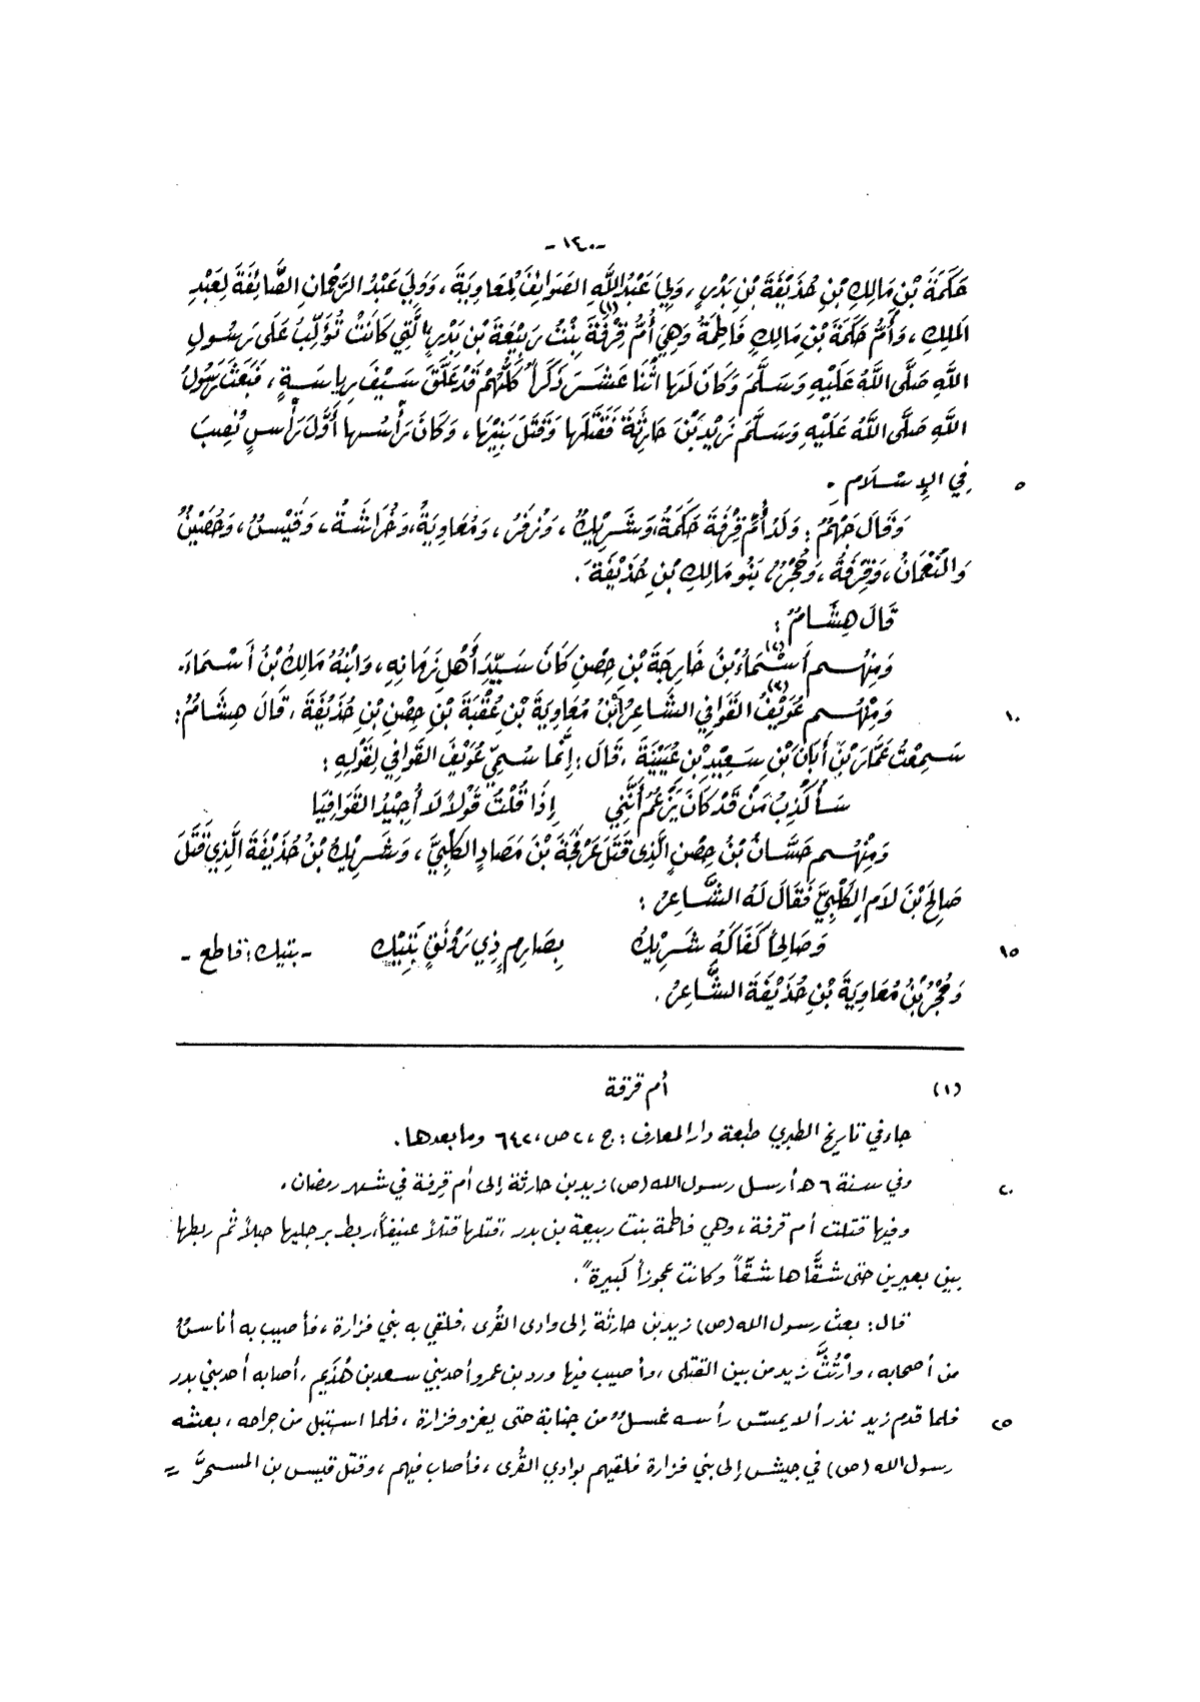 -١٤٠-
حَكَمَةَ بْنِ مَالِكِ بْنِ حُذَيْفَةَ بْنِ بَدْرٍ، وَلِيَ عَبْدُ اللَّهِ الصَوَائِفَ لِمُعَاوِيَةَ، وَوَلِيَ عَبْدُ الرَّحْمَانِ الصَّائِفَةَ لِعَبْدِ
المَلِكِ، وَأُمُّ حَكَمَةَ بْنِ مَالِكٍ فَاطِمَةُ وَهِيَ أُمُّ قِرْفَةَ (١) بِنْتُ رَبِيْعَةَ بْنِ بَدْرٍ الَّتِي كَانَتْ تُؤَلِّبُ عَلَى رَسُولِ
اللَّهِ صَلَّى اللَّهُ عَلَيْهِ وَسَلَّمَ وَكَانَ لَهَا اثْنَا عَشَرَ ذَكَراً كُلُّهُمْ قَدْ عَلَّقَ سَيْفَ رِيَاسَةٍ، فَبَعَثَ رَسُولُ
اللَّهِ صَلَّى اللَّهُ عَلَيْهِ وَسَلَّمَ زَيْدَ بْنَ حَارِثَةَ فَقَتَلَهَا وَقَتَلَ بَنِيْهَا، وَكَانَ رَأْسُهَا أَوَّلَ رَأْسٍ نُصِبَ
٥ فِي الإِسْلَامِ.
وَقَالَ جَهْمٌ: وَلَدَ أُمُّ قِرْفَةَ حَكَمَةُ، وَشَرِيْكٌ، وَزُفَرُ، وَمُعَاوِيَةُ، وَخُرَاشَةُ، وَقَيْسٌ، وَحُصَيْنٌ
وَالنُّعْمَانُ، وَقِرْفَةُ، وَحُجْرٌ، بَنُو مَالِكِ بْنِ حُذَيْفَةَ.
قَالَ هِشَامٌ:
وَمِنْهُم أَسْمَاءُ (٢) بْنُ خَارِجَةَ بْنِ حِصْنٍ كَانَ سَيِّدَ أَهْلِ زَمَانِهِ، وَابْنُهُ مَالِكُ بْنُ أَسْمَاءَ.
١٠ وَمِنْهُم عُوَيْفُ (٣) القَوَافِي الشَّاعِرُ ابْنُ مُعَاوِيَةَ بْنِ عُقْبَةَ بْنِ حِصْنِ بْنِ حُذَيْفَةَ، قَالَ هِشَامٌ:
سَمِعْتُ عَمَّارَ بْنَ أَبَانَ بْنِ سَعِيْدِ بْنِ عُيَيْنَةَ، قَالَ: إِنَّمَا سُمِّيَ عُوَيْفَ القَوَافِي لِقَوْلِهِ:
سَأُكْذِبُ مَنْ قَدْ كَانَ يَزْعُمُ أَنَّنِي إِذَا قُلْتُ قَوْلاً لَا أُجِيْدُ القَوَافِيَا
وَمِنْهُم حَسَّانُ بْنُ حِصْنٍ الَّذِي قَتَلَ عَرْفَجَةَ بْنَ مَصَادٍ الكَلْبِيَّ، وَشَرِيْكُ بْنُ حُذَيْفَةَ الَّذِي قَتَلَ
صَالِحَ بْنَ لَامٍ الكَلْبِيَّ فَقَالَ لَهُ الشَّاعِرُ:
١٥ وَصَالِحاً كَفَاكَهُ شَرِيْكُ بِصَارِمٍ ذِي رَوْنَقٍ بَتِيْكِ - بتيك: قاطع -
وَحُجْرُ بْنُ مُعَاوِيَةَ بْنِ حُذَيْفَةَ الشَّاعِرُ.
(١) أم قرفة
جاء في تاريخ الطبري طبعة دار المعارف: ج، ٢، ص، ٦٤٢ وما بعدها.
٢٠ وفي سنة ٦ هـ أرسل رسول الله (ص) زيد بن حارثة إلى أم قرفة في شهر رمضان.
وفيها قتلت أم قرفة، وهي فاطمة بنت ربيعة بن بدر، قتلها قتلاً عنيفاً، ربط برجليها حبلاً ثم ربطها
بين بعيرين حتى شقَّاها شقّاً وكانت عجوزاً كبيرة".
قال: بعث رسول الله (ص) زيد بن حارثة إلى وادى القُرى، فلقي به بني فزارة، فأصيب به أناسٌ
من أصحابه، وارْتُثَّ زيد من بين القتلى، وأصيب فيها ورد بن عمرو أحد بني سعد بن هُذَيم، أصابه أحد بني بدر
٢٥ فلما قدم زيد نذر ألا يمسّ رأسه غسلٌ من جنابة حتى يغزو فزارة، فلما استبل من جراحه، بعثه
رسول الله (ص) في جيش إلى بني فزارة فلقيهم بوادي القُرى، فأصاب فيهم، وقتل قيس بن المسحَّر =